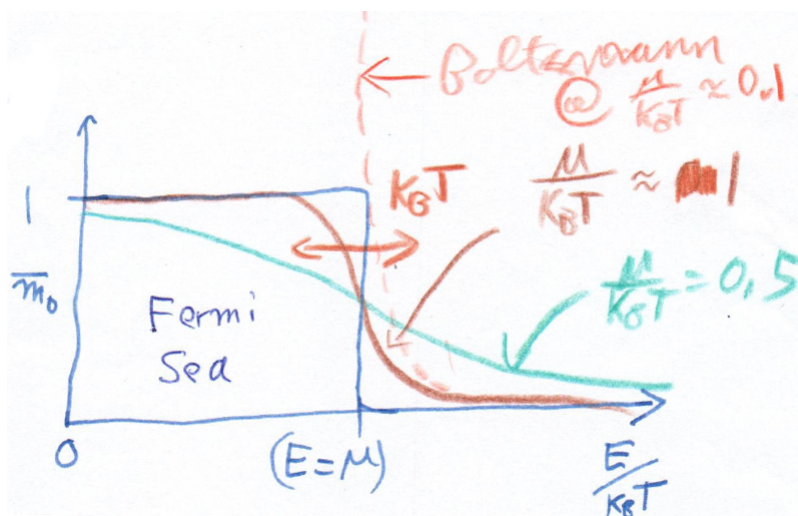 Boltzmann
@ μ/K_BT ≈ 0.1
K_BT
μ/K_BT ≈ 1
1
m̅₀
μ/K_BT = 0.5
Fermi
Sea
0
(E = μ)
E/K_BT